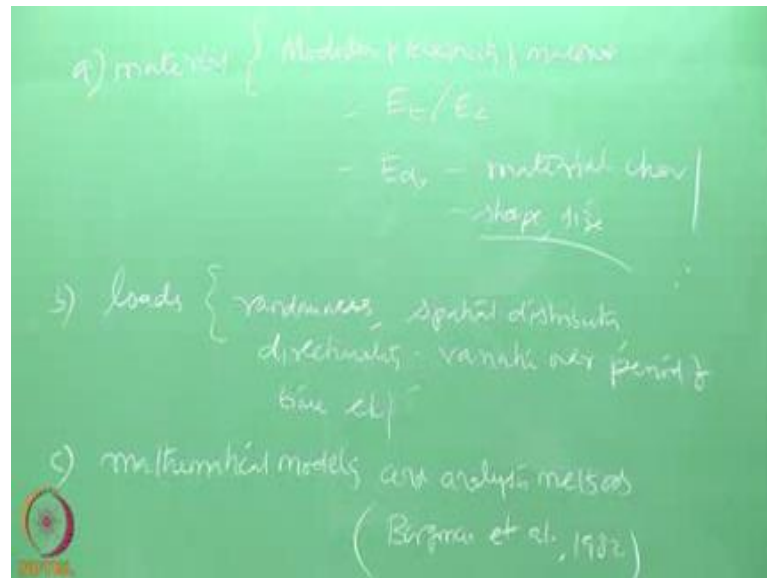 a) material {
- Et / Ec
- Eq. - material char
- shape, size
b) loads { randomness, spatial distributn
directionality - variatn over period of
time etc
c) mathematical models and analysis methods
( et al., 1982 )
NPTEL